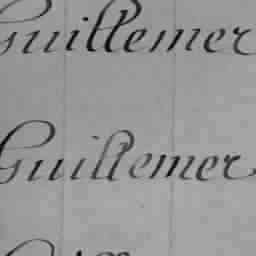 Guillemer
Guillemer